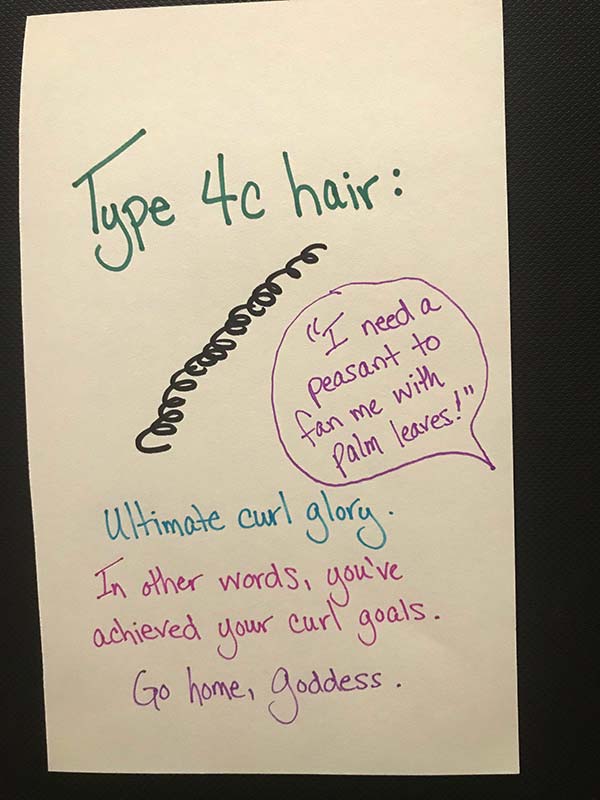 Type 4c hair:
"I need a
peasant to
fan me with
palm leaves!"
Ultimate curl glory.
In other words, you've
achieved your curl goals.
Go home, goddess.